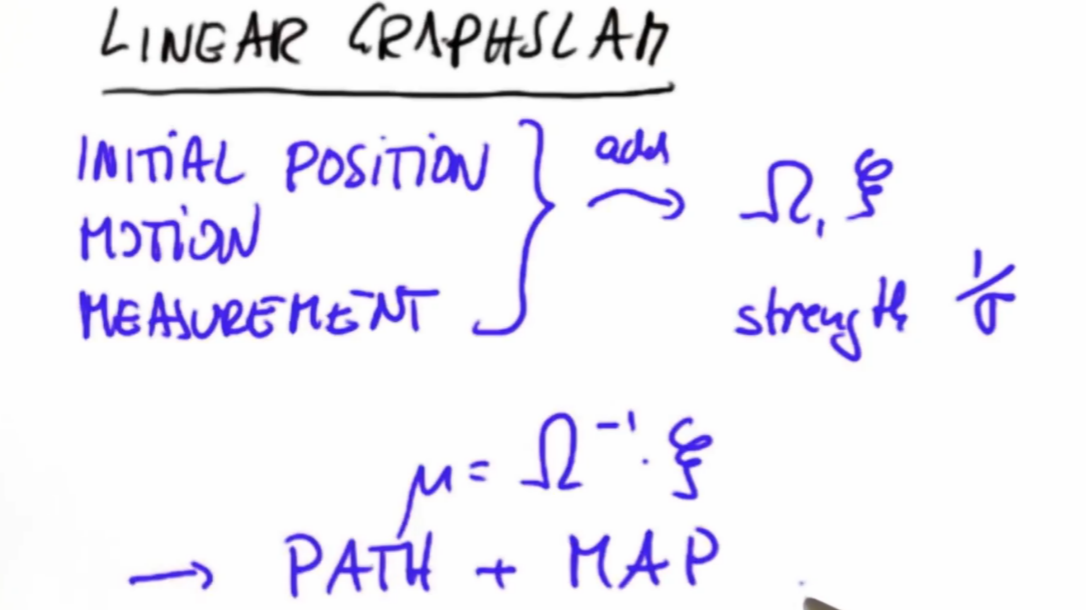 LINEAR GRAPHSLAM
INITIAL POSITION
MOTION
MEASUREMENT
add
Ω, ξ
strength 1/σ
μ = Ω⁻¹ · ξ
→ PATH + MAP